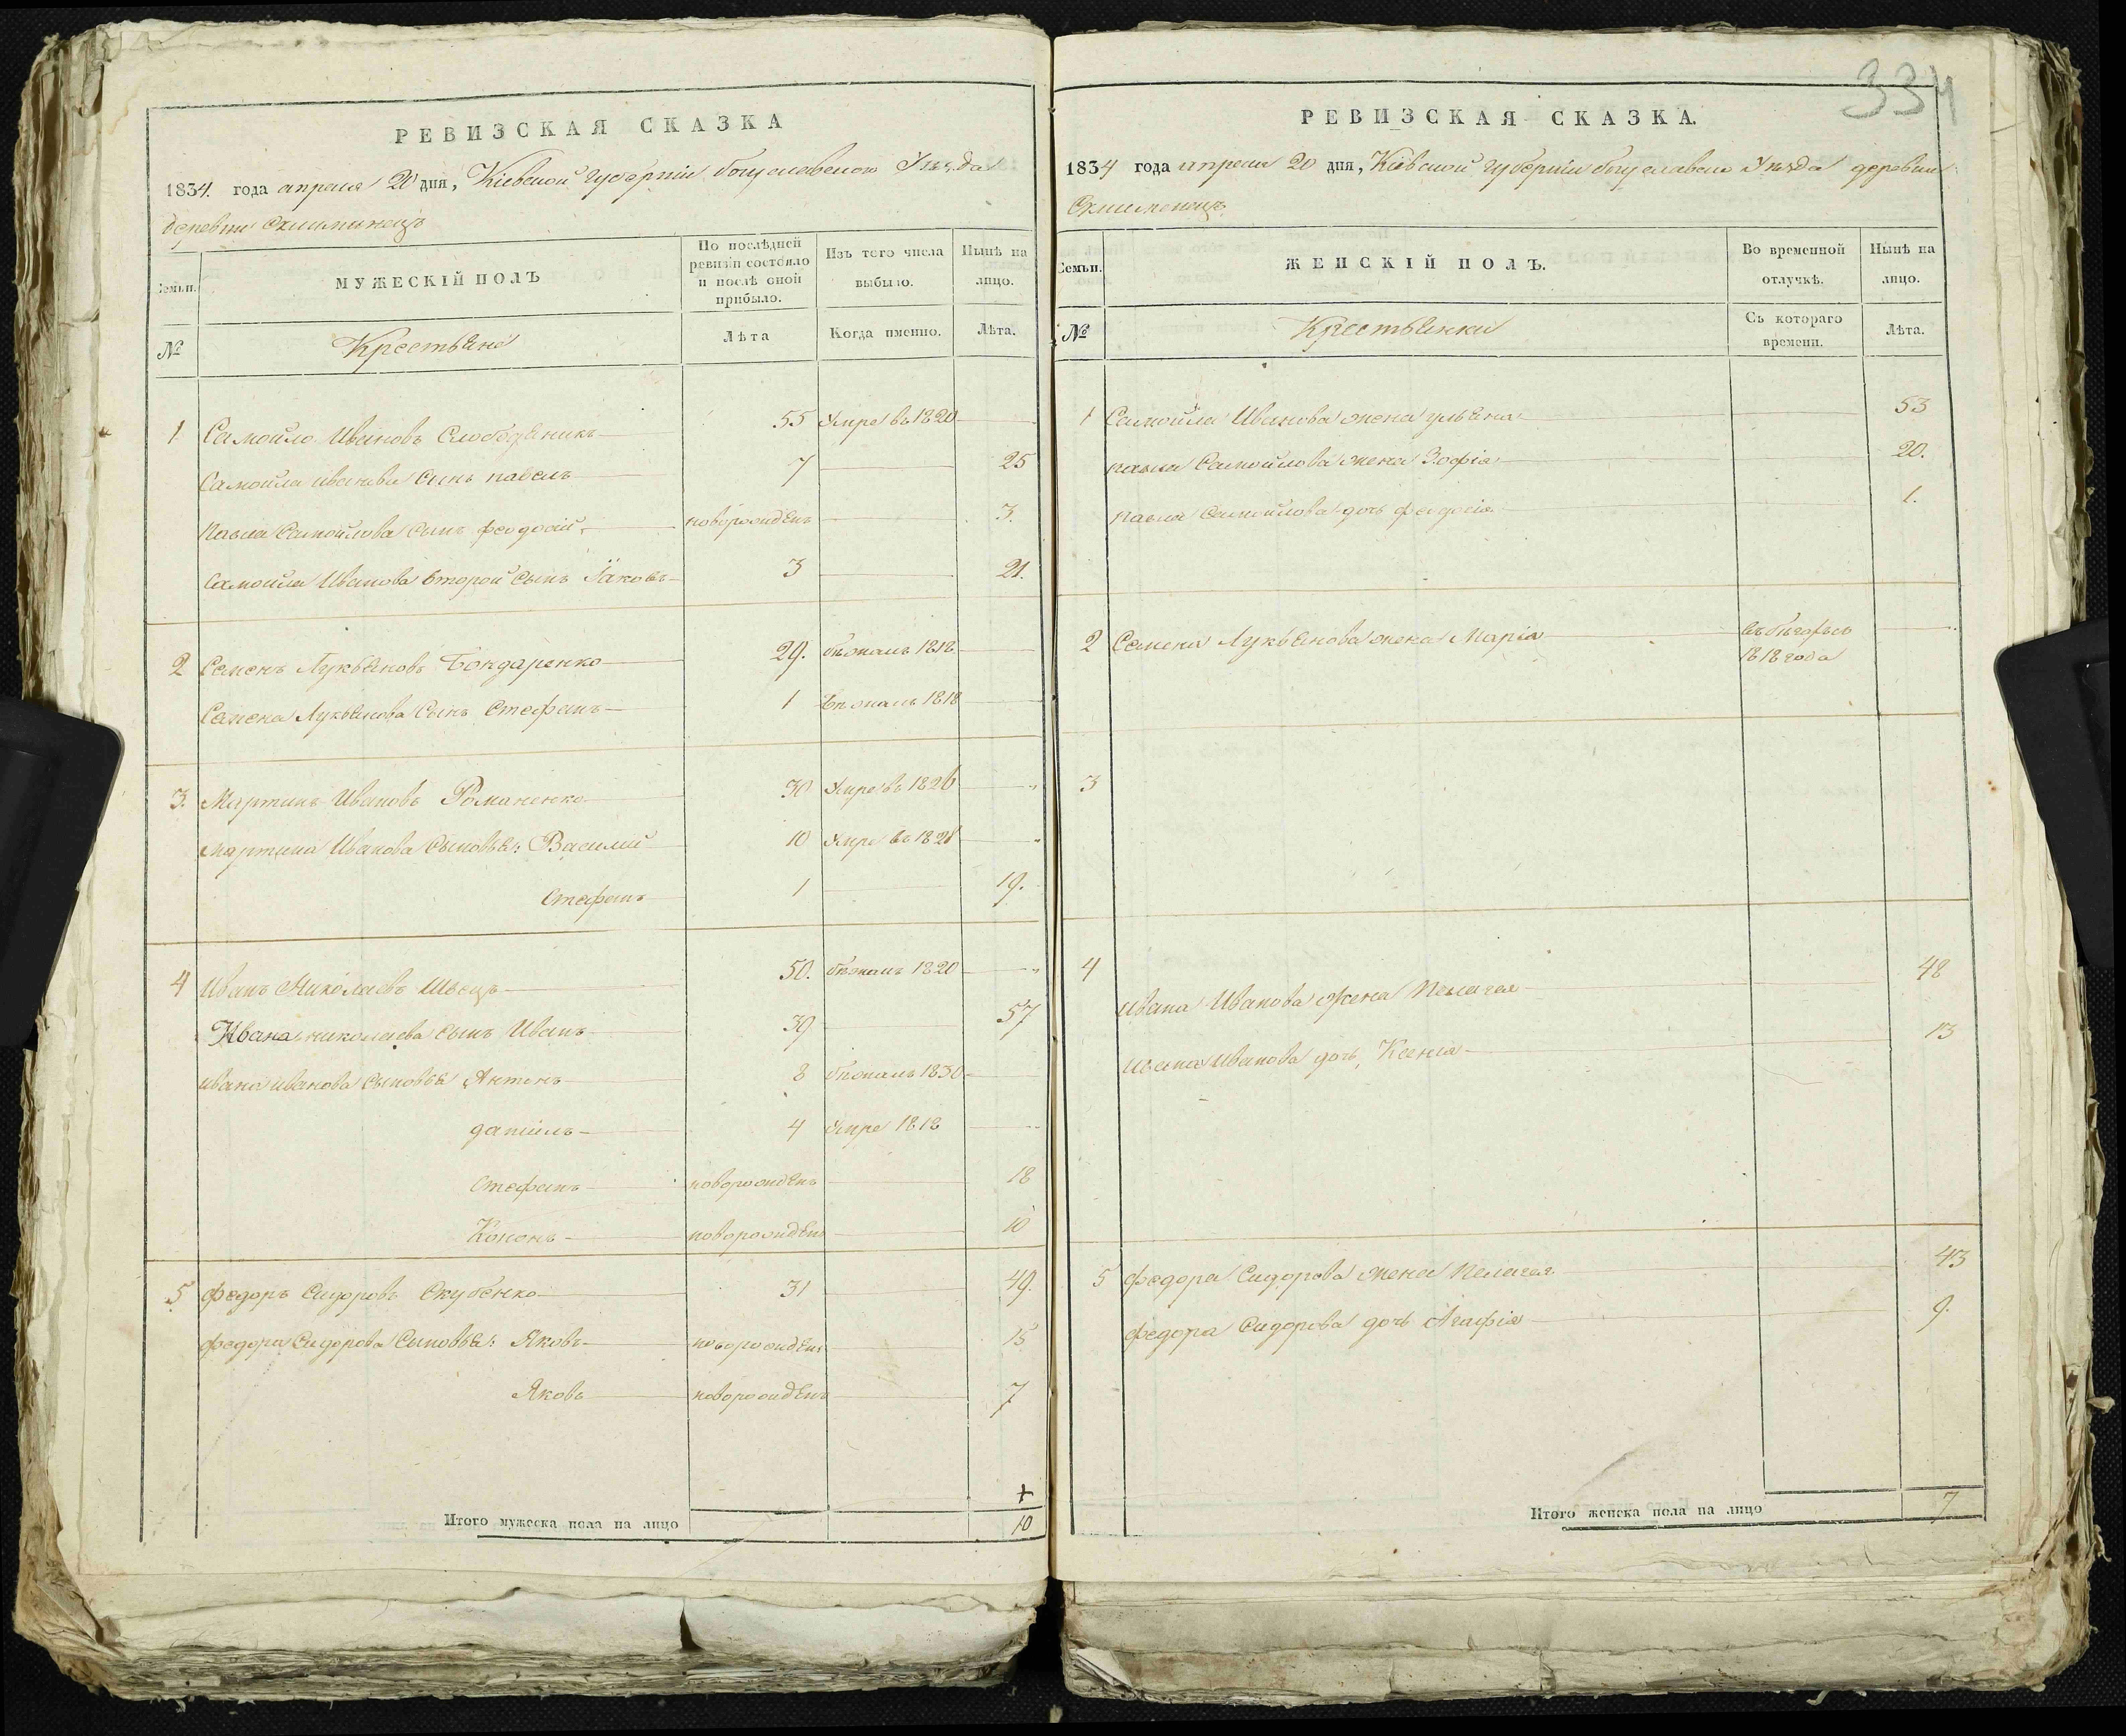 РЕВИЗСКАЯ СКАЗКА
1834. года апреля 20 дня, Кіевской губерніи богуславского Уѣзда
деревни
Семьи.
МУЖЕСКІЙ ПОЛЪ
По послѣдней ревизіи состояло и послѣ оной прибыло.
Изъ того числа выбыло.
Нынѣ на лицо.
№
Крестьяне
Лѣта
Когда именно.
Лѣта.
1 Самойло Ивановъ Слободяникъ 55 Умре въ 1820
Самойла иванова Сынъ павелъ 7 25
павла Самойлова Сынъ феодосій новорожденъ 3.
Самойла Иванова второй Сынъ Іаковъ 3 21.
2 Семенъ Лукьяновъ Бондаренко 29. бѣжалъ 1818
Семена Лукьянова Сынъ Стефанъ 1 бѣжалъ 1818
3. Мартинъ Ивановъ Романенко 30 Умре въ 1826
мартина Иванова Сыновья: Василій 10 Умре въ 1821
Стефанъ 1 19.
4 Иванъ Николаевъ Швецъ 50. бѣжалъ 1820
Ивана николаева Сынъ Иванъ 39 57
ивана иванова Сыновья Антонъ 8 бѣжалъ 1830
даніилъ 4 Умре 1818
Стефанъ новорожденъ 18
Кононъ новорожденъ 10
5 федоръ Сидоровъ Скубенко 31 49.
федора Сидорова Сыновья: Яковъ новорожденъ 15
Яковъ новорожденъ 7
Итого мужеска пола на лицо 10
334
РЕВИЗСКАЯ СКАЗКА.
1834 года апреля 20 дня, Кіевской губерніи богуславско Уѣзда деревни
Семьи.
ЖЕНСКІЙ ПОЛЪ.
Во временной отлучкѣ.
Нынѣ на лицо.
№
Крестьянки
Съ котораго времени.
Лѣта.
1 Самойла Иванова жена ульяна 53
павла Самойлова жена Зофія 20.
павла Самойлова дочь феодосія 1.
2 Семена Лукьянова жена Марія въ бѣгахъ съ
1818 года
3
4
ивана Иванова жена Пелагея 48
ивана Иванова дочь Ксенія 13
5 федора Сидорова жена Пелагея 43
федора Сидорова дочь Агафія 9.
Итого женска пола на лицо 7